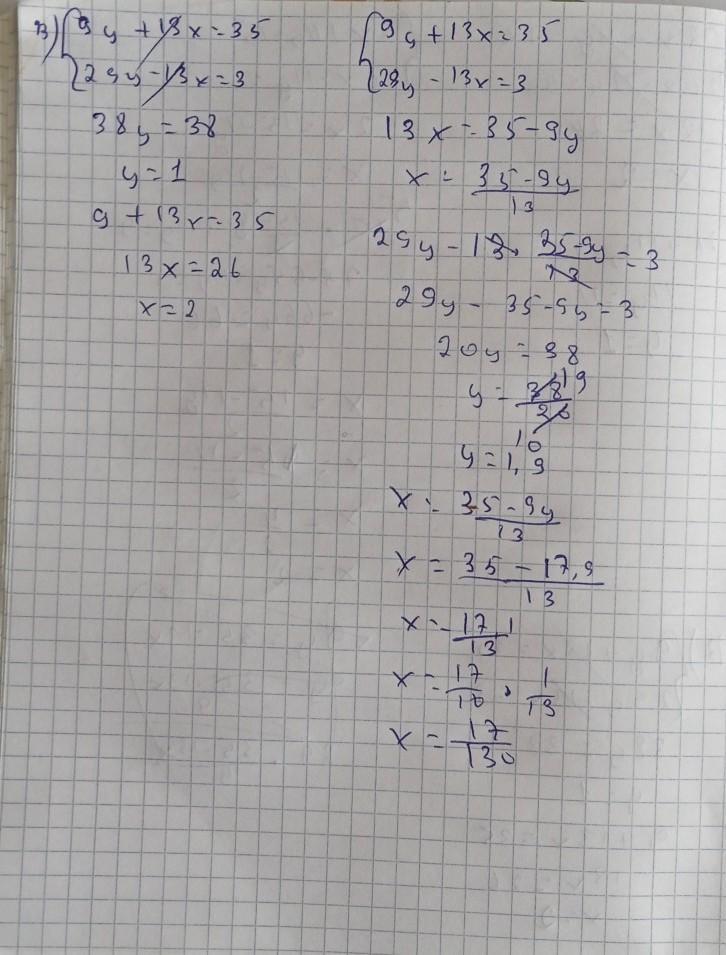 в) { 9y + 13x = 35
{ 29y - 13x = 3
38y = 38
y = 1
9 + 13x = 35
13x = 26
x = 2
{ 9y + 13x = 35
{ 29y - 13x = 3
13x = 35 - 9y
x = \frac{35 - 9y}{13}
29y - 13 · \frac{35 - 9y}{13} = 3
29y - 35 - 9y = 3
20y = 38
y = \frac{38}{20} 19 10
y = 1,9
x = \frac{35 - 9y}{13}
x = \frac{35 - 17,9}{13}
x = \frac{17 1}{13}
x = \frac{17}{10} · \frac{1}{13}
x = \frac{17}{130}